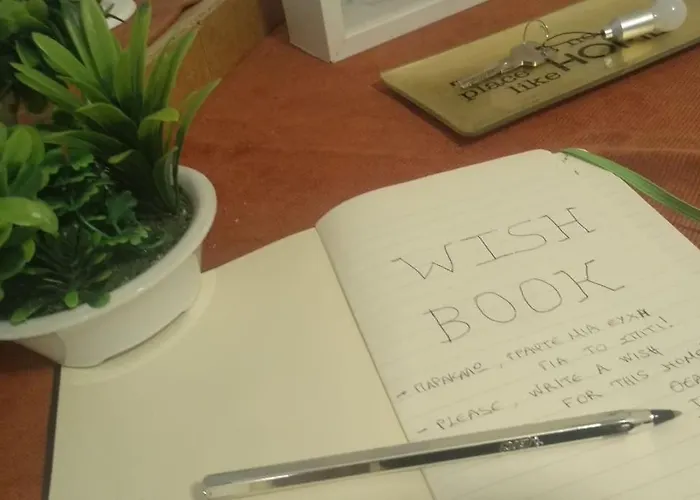 place
like HOME
WISH
BOOK
- ΠΑΡΑΚΑΛΩ, ΓΡΑΨΤΕ ΜΙΑ ΕΥΧΗ
ΓΙΑ ΤΟ ΣΠΙΤΙ!
- PLEASE, WRITE A WISH
FOR THIS HOME